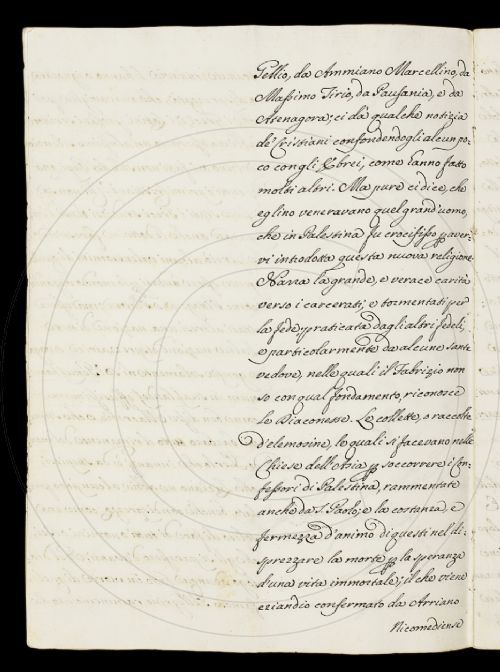 Gellio, da Ammiano Marcellino, da
Massimo Tirio, da Pausania, e da
Atenagora; ci dà qualche notizia
de' Cristiani confondendogli alcun po-
co con gli Ebrei, come hanno fatto
molti altri. Ma pure ci dice, che
eglino veneravano quel grand'uomo,
che in Palestina fu crocifisso p aver-
vi introdotta questa nuova religione.
Narra la grande, e verace carità
verso i carcerati, e tormentati per
la fede, praticata dagli altri fedeli,
e particolarmente da alcune sante
vedove, nelle quali il Fabrizio non
so con qual fondamento, riconosce
le Diaconesse. Le collette, o raccolte
d'elemosine, le quali si facevano nelle
Chiese dell'Asia p soccorrere i Con-
fessori di Palestina, rammentate
anche da S. Paolo; e la costanza, e
fermezza d'animo di questi nel di-
sprezzare la morte p la speranza
d'una vita immortale; il che viene
eziandio confermato da Arriano
Nicomediense